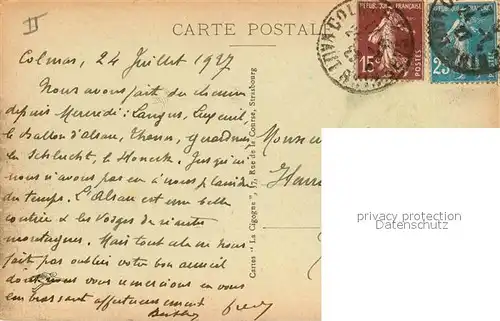 II
CARTE POSTALE
COLMAR
REPUBLIQUE FRANÇAISE
15c
POSTES
25c
Colmar, 24 Juillet 1927
Nous avons fait du chemin
depuis Mercredi : Langres, Luxeuil,
le Ballon d'Alsace, Thann, Gérardmer
la Schlucht, le Honeck. Jusqu'ici
nous n'avons pas eu à nous plaindre
du temps. L'Alsace est une belle
contrée & les Vosges de
montagnes. Mais tout cela ne nous
fait pas oublier votre bon accueil
dont nous vous remercions en vous
embrassant affectueusement
Berthe Fred
Cartes "La Cigogne", 37, Rue de la Course, Strasbourg
Monsieur
Henri
privacy protection
Datenschutz